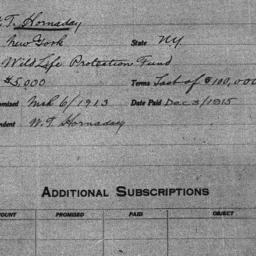 W.T. Hornaday
New York State NY
Wild Life Protection Fund
$5,000 Terms Last of $100,000
omised Mch 6/1913 Date Paid Dec 3/1915
ndent W.T. Hornaday
ADDITIONAL SUBSCRIPTIONS
OUNT PROMISED PAID OBJECT